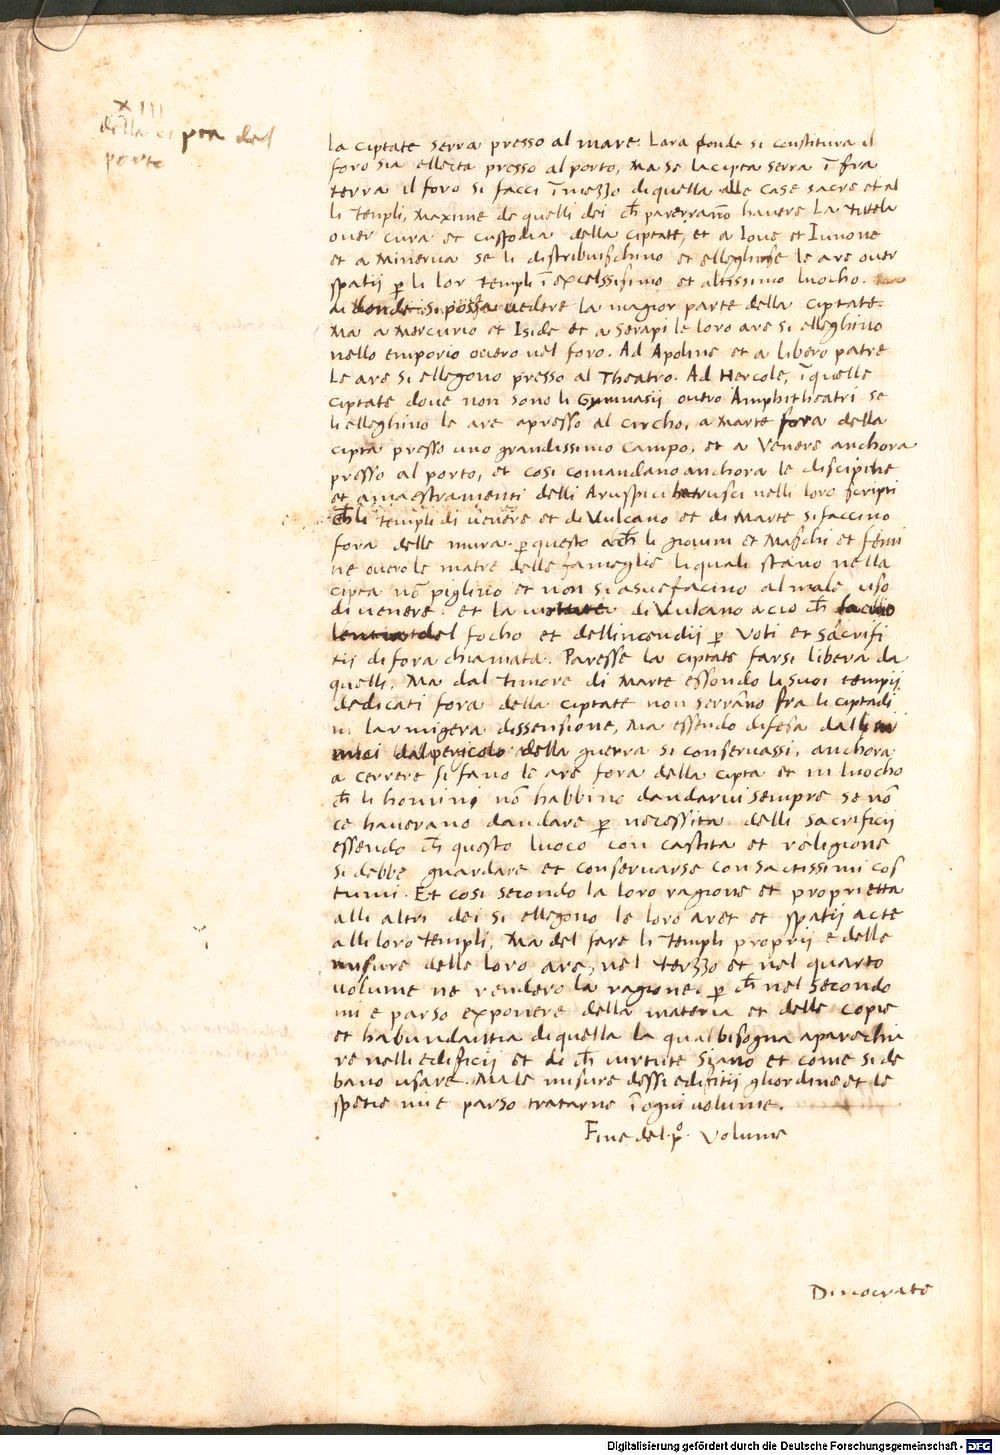 XIII
della
porto
la ciptate serra presso al mare. Lara donde si constituira il
foro sia ellecta presso al porto, Ma se la cipta serra ī fra
terra il foro si facci ī mezzo di quella alle case sacre et al
li Templi, Maxime de quelli dei ch̄ parerrano havere La tutela
over cura et custodia della ciptate, et a Iove et Iunone
et a Minerva se li distribuischino et elleghise le are over
spatij p̄ li lor templi ī excelssisimo et altissimo luocho.
di donde si possa vedere la magior parte della ciptate.
Ma a Mercurio et Iside et a Serapi le loro are si elleghino
nello emporio overo nel foro. Ad Apoline et a libero patre
Le are si ellegono presso al Theatro. Ad Hercole, ī quelle
ciptate dove non sono li Gymnasij overo Amphitheatri se
li elleghino le are apresso al circho, a Marte fora della
cipta presso uno grandissimo campo, et a Venere anchora
presso al porto, et cosi comandano anchora le discipine
et amaestramenti delli Aruspici hetrusci nelli loro scripti
ch̄ li templi di venere et di Vulcano et di Marte si faccino
fora delle mura. p̄ questo acch̄ li giovini et Maschi et femi
ne overo le matre delle fameglie li quali stano nella
cipta nō piglino et non si asuefacino al male uso
di venere. et la di Vulcano acio ch̄
del focho et dellincendij p̄ voti et sacrifi
tij di fora chiamata. Paresse la ciptate farsi libera da
quelli. Ma dal timore di Marte essendo li suoi tempij
dedicati fora della ciptate non serrano fra li ciptadi
ni larmigera dissensione, Ma essendo difesa dalli ni
mici dal pericolo della guerra si conservassi, anchora
a cerrere si fano le are fora della cipta et in luocho
ch̄ li homini nō habbino dandarvi sempre se nō
ce haverano dandare p̄ necessita delli sacrificij
essendo ch̄ questo luoco con castita et religione
si debbe guardare et conservarse con sactissimi cos
tumi. Et cosi secondo la loro ragione et proprietta
alli altri dei si ellegono le loro aret et spatij acte
alli loro templi, Ma del fare li templi proprij e delle
misure delle loro are, nel terzzo et nel quarto
volume ne rendero la ragione. p̄ ch̄ nel secondo
mi e parso exponere della materia et delle copie
et habundantia di quella la qual bisogna aparechia
re nelli edificij et di ch̄ virtute siano et come si de
bano usare. Ma le misure dessi edifitij gli ordine et le
spetie mi e parso tratarne ī ogni volume.
Fine del pº. Volume
Dinocrate
Digitalisierung gefördert durch die Deutsche Forschungsgemeinschaft - DFG